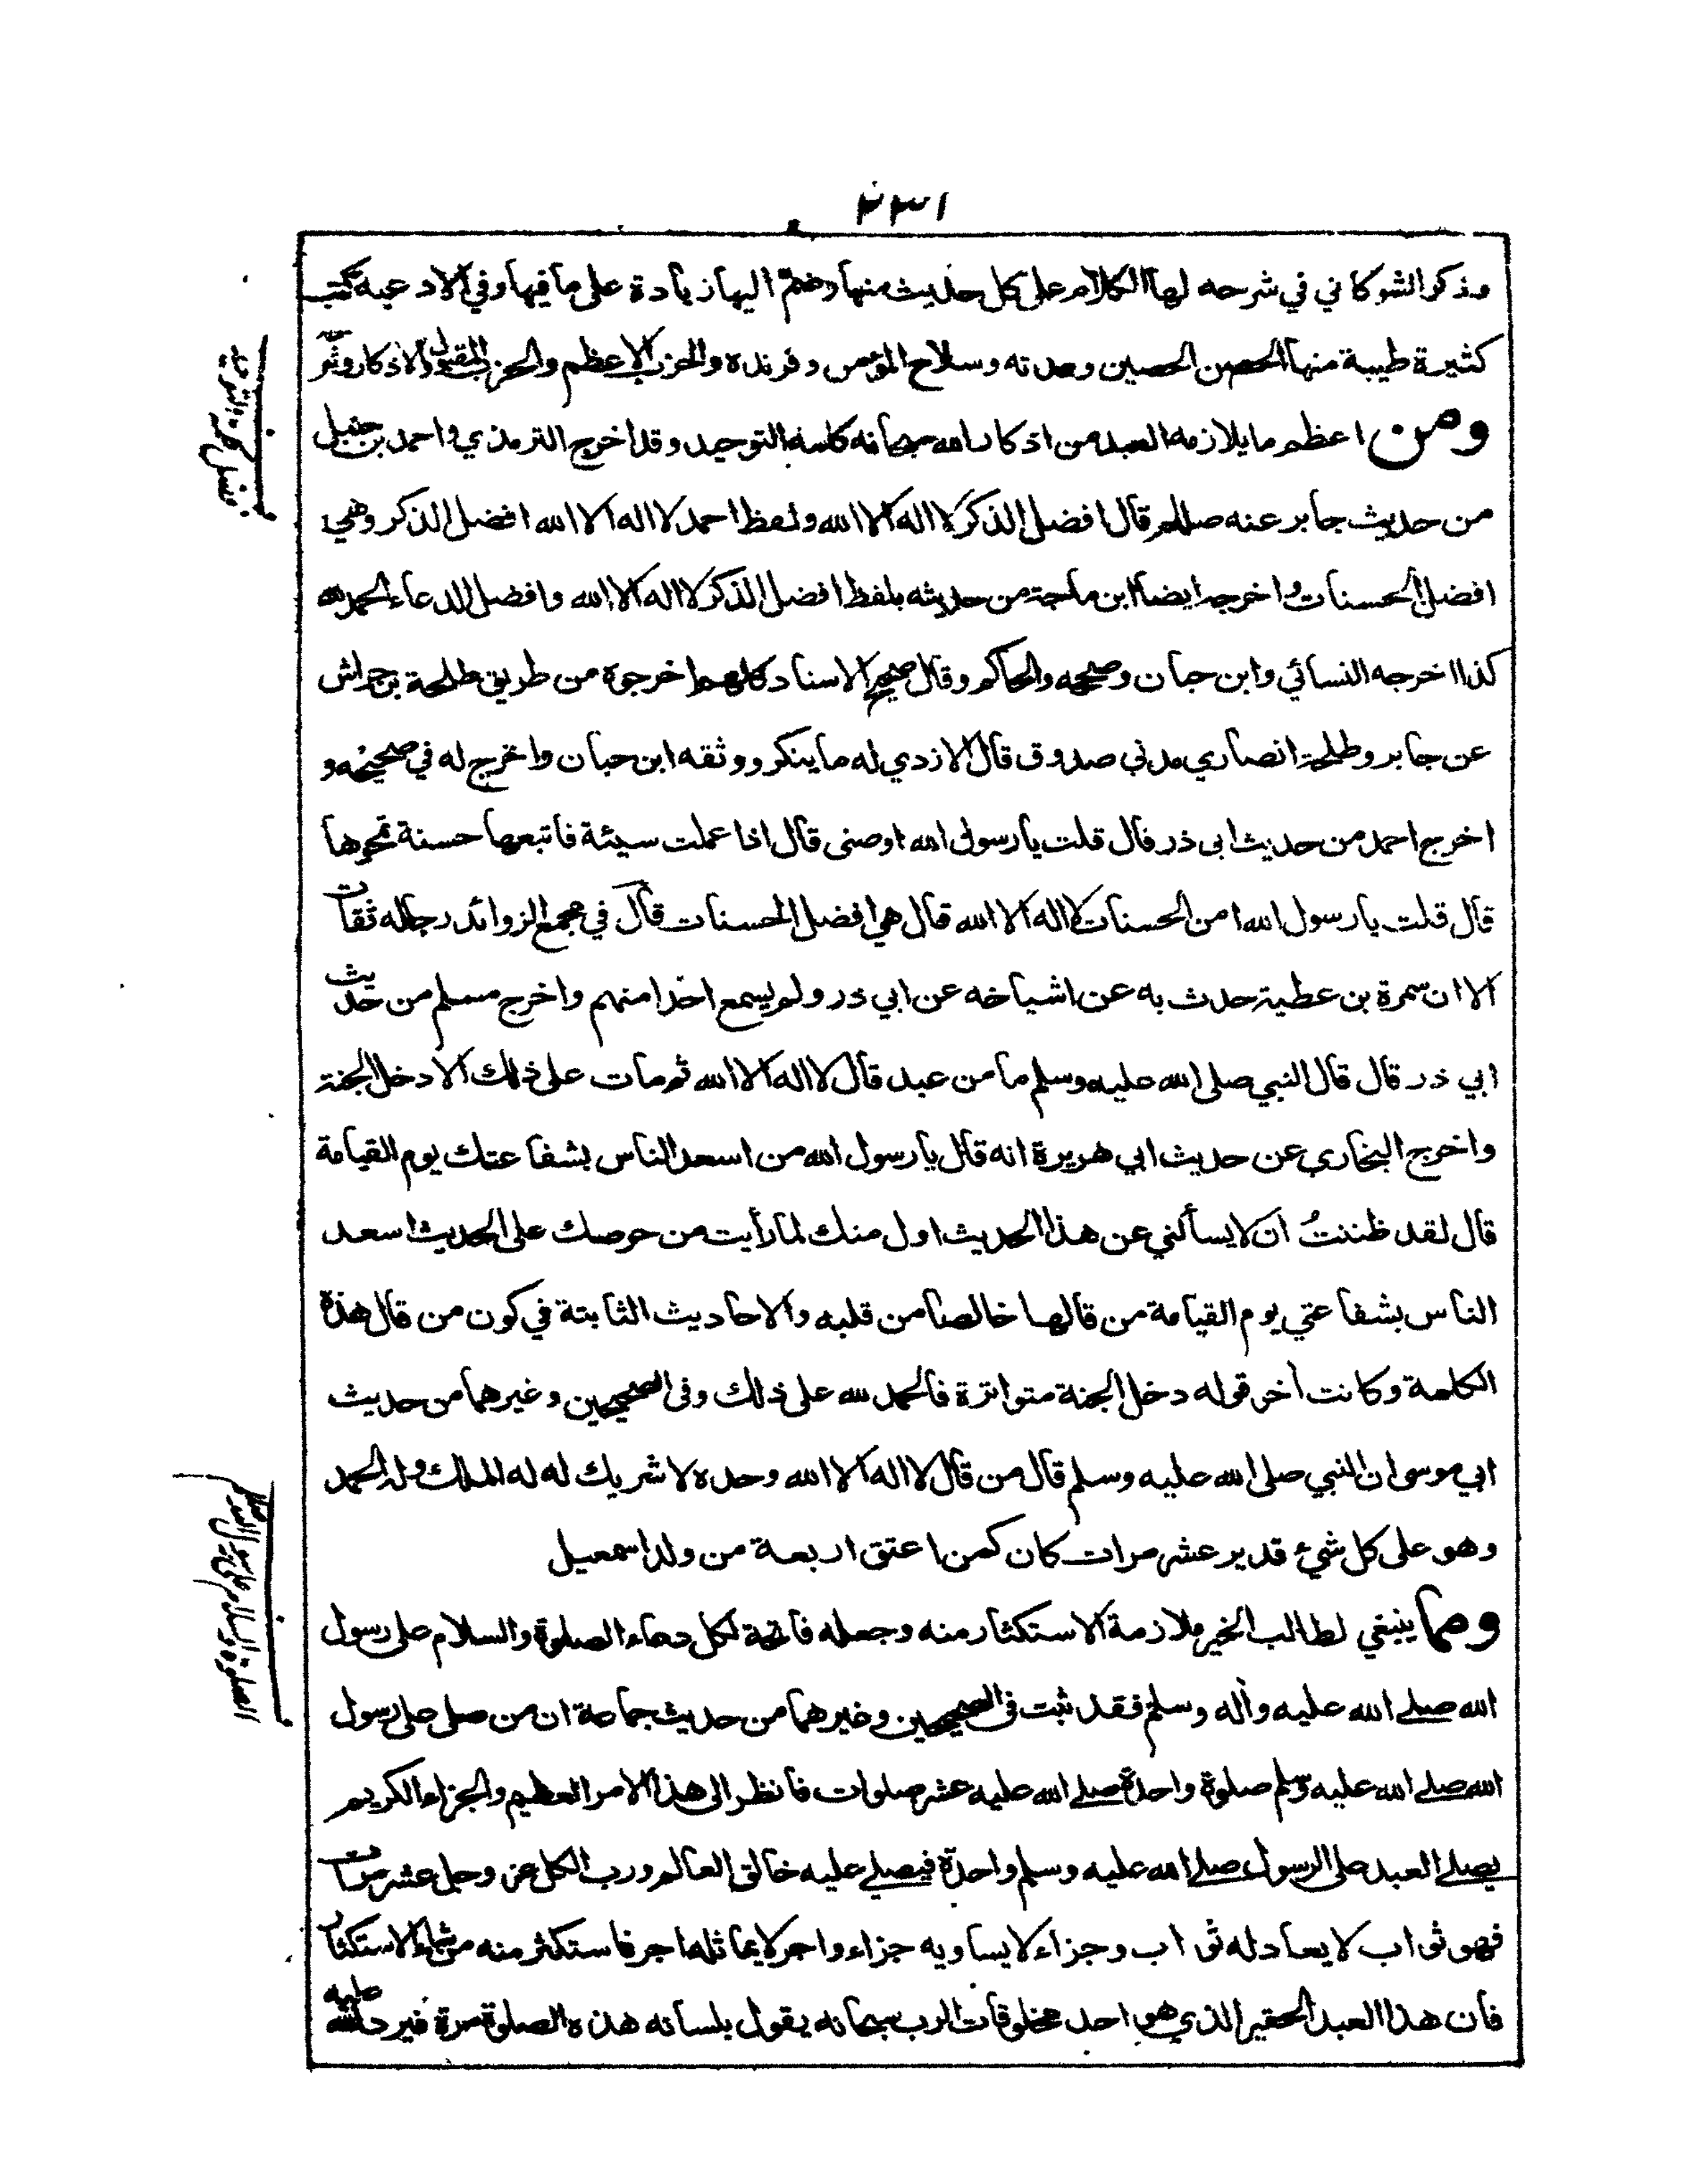 ٢٣١
وذكر الشوكاني في شرحه لها الكلام على كل حديث منها وضم اليها زيادة على ما فيها وفي الادعية كتب
كثيرة طيبة منها الحصن الحصين وعدته وسلاح المؤمن وفرنده والحزب الاعظم والحزب المقبول والاذكار
ومن اعظم ما يلازمه العبد من اذكار الله سبحانه كلمة التوحيد وقد اخرج الترمذي واحمد بن حنبل
من حديث جابر عنه صللم قال افضل الذكر لا اله الا الله ولفظ احمد لا اله الا الله افضل الذكر وهي
افضل الحسنات واخرجه ايضا ابن ماجة من حديثه بلفظ افضل الذكر لا اله الا الله وافضل الدعاء الحمد لله
كذا اخرجه النسائي وابن حبان وصححه والحاكم وقال صحيح الاسناد كلهم اخرجوه من طريق طلحة بن خراش
عن جابر وطلحة انصاري مدني صدوق قال الازدي له ما ينكر ووثقه ابن حبان واخرج له في صحيحه و
اخرج احمد من حديث ابى ذر قال قلت يا رسول الله اوصنى قال اذا عملت سيئة فاتبعها حسنة تمحوها
قال قلت يا رسول الله امن الحسنات لا اله الا الله قال هي افضل الحسنات قال في مجمع الزوائد رجاله ثقات
الا ان سمرة بن عطية حدث به عن اشياخه عن ابي ذر ولم يسمع احدا منهم واخرج مسلم من حديث
ابي ذر قال قال النبي صلى الله عليه وسلم ما من عبد قال لا اله الا الله ثم مات على ذلك الا دخل الجنة
واخرج البخاري عن حديث ابي هريرة انه قال يا رسول الله من اسعد الناس بشفاعتك يوم القيامة
قال لقد ظننتُ ان لا يسألني عن هذا الحديث اول منك لما رأيت من حرصك على الحديث اسعد
الناس بشفاعتي يوم القيامة من قالها خالصا من قلبه والاحاديث الثابتة في كون من قال هذه
الكلمة وكانت أخر قوله دخل الجنة متواترة فالحمد لله على ذلك وفى الصحيحين وغيرهما من حديث
ابي موسى ان النبي صلى الله عليه وسلم قال من قال لا اله الا الله وحده لا شريك له له الملك وله الحمد
وهو على كل شيء قدير عشر مرات كان كمن اعتق اربعة من ولد اسمعيل
ومما ينبغي لطالب الخير ملازمة الاستكثار منه وجعله فاتحة لكل دعاء الصلوة والسلام على رسول
الله صلے الله عليه وأله وسلم فقد ثبت فى الصحيحين وغيرهما من حديث جماعة ان من صلى على رسول
الله صلے الله عليه وسلم صلوة واحدة صلے الله عليه عشر صلوات فانظر الى هذا الامر العظيم والجزاء الكريم
يصلے العبد على الرسول صلے الله عليه وسلم واحدة فيصلے عليه خالق العالم ورب الكل عز وجل عشر مرات
فهو ثواب لا يعادله ثواب وجزاء لا يساويه جزاء واجر لا يماثله اجر فاستكثر منه من شاء الاستكثار
فان هذا العبد الحقير الذي هو احد مخلوقات الرب سبحانه يقول بلسانه هذه الصلوة مرة فيرد الله عليه
فضل كلمة التوحيد